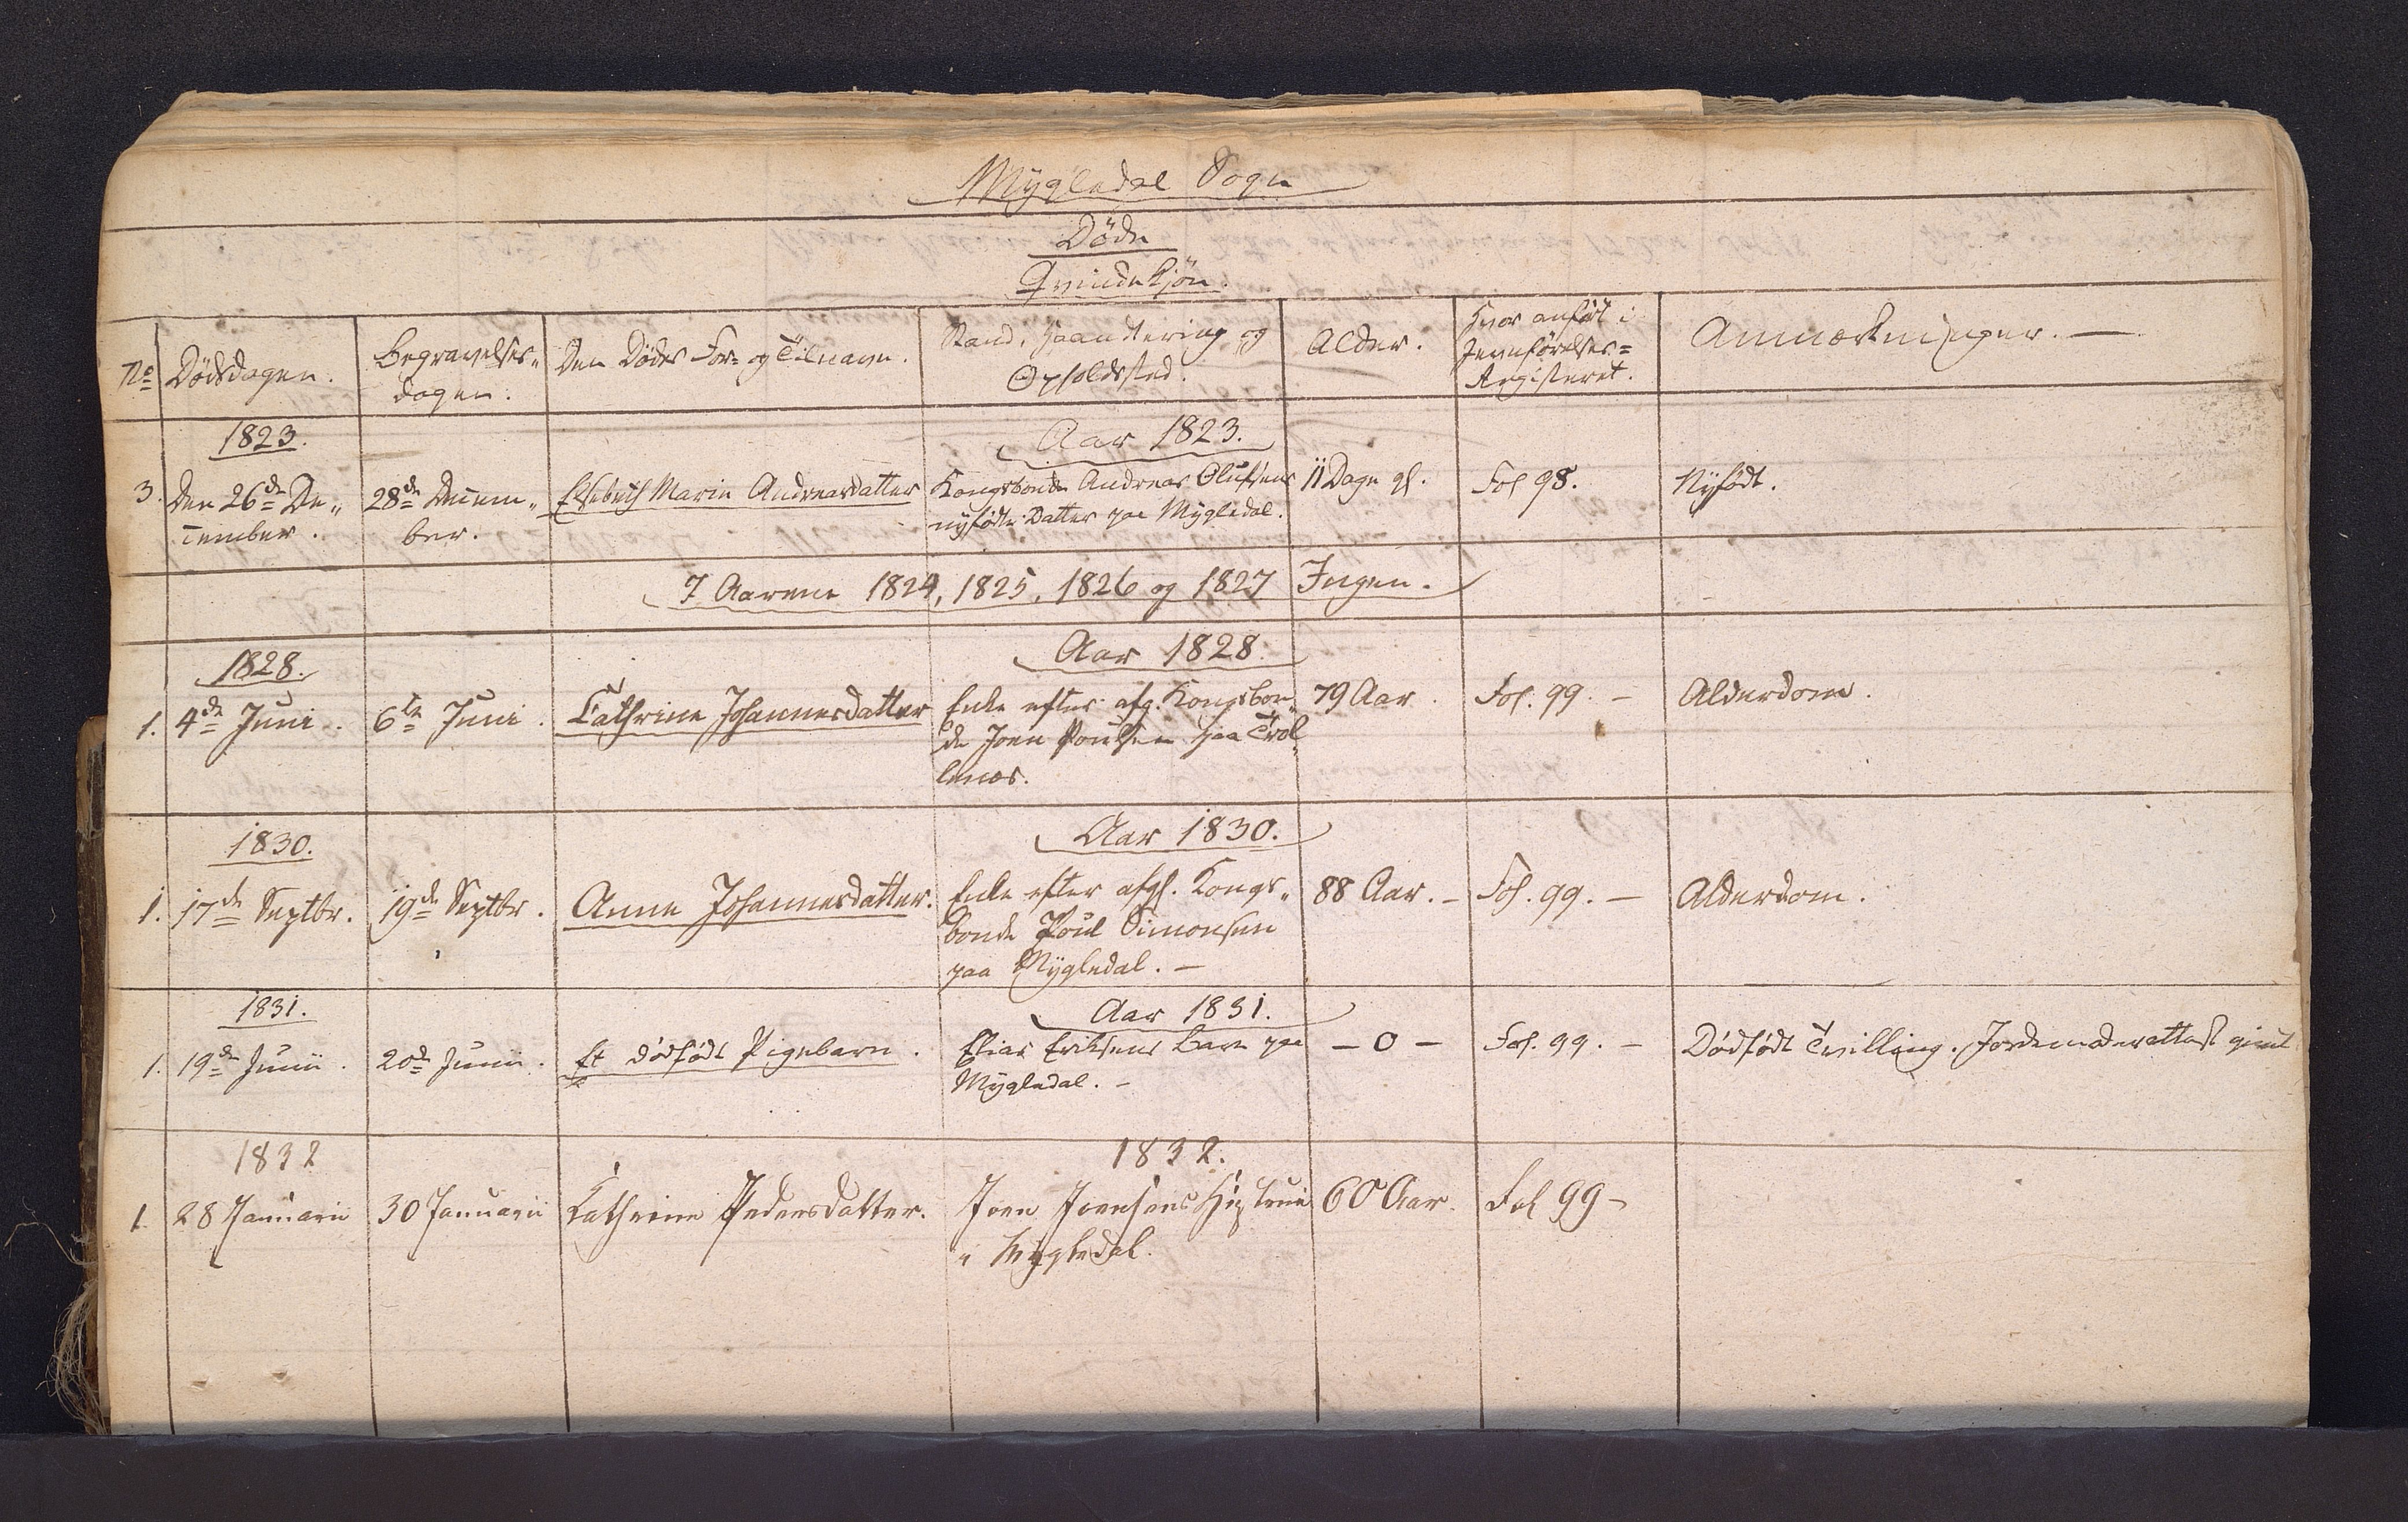 Mygledal Sogn
Døde
Qvindekjøn.
No
Dødsdagen.
Begravelses-
dagen.
Den Dødes For- og Tilnavn.
Stand, Haandtering og
Opholdssted.
Alder.
Hvor anført i
Jevnførelses-
Registeret.
Anmærkninger. —
1823.
Aar 1823.
3. Den 26de De-
cember.
28de Decem-
ber.
Elsebeth Marie Andreasdatter
Kongsbonde Andreas Olufsens
nyfødte Datter paa Mygledal.
11 Dage gl.
Fol 98.
Nyfødt.
I Aarene 1824, 1825, 1826 og 1827 Ingen.
1828.
Aar 1828.
1. 4de Juni.
6te Juni.
Cathrine Johannesdatter
Enke efter afg. Kongsbon-
de Joen Poulsen paa Trol-
lenæs.
79 Aar.
Fol. 99. —
Alderdom.
1830.
Aar 1830.
1. 17de Septbr.
19de Septbr.
Anne Johannesdatter.
Enke efter afgl. Kongs-
bonde Poul Simonsen
paa Mygledal. —
88 Aar. —
Fol. 99. —
Alderdom.
1831.
Aar 1831.
1. 19de Junii.
20de Junii.
Et dødfødt Pigebarn.
Elias Eriksens Barn paa
Mygledal. —
— 0 —
Fol. 99. —
Dødfødt Tvilling. Jordemoderattest givet
1832
1832.
1. 28 Januarii
30 Januarii
Cathrine Pedersdatter.
Joen Joensens Hustrue
i Mygledal.
60 Aar.
Fol 99 —